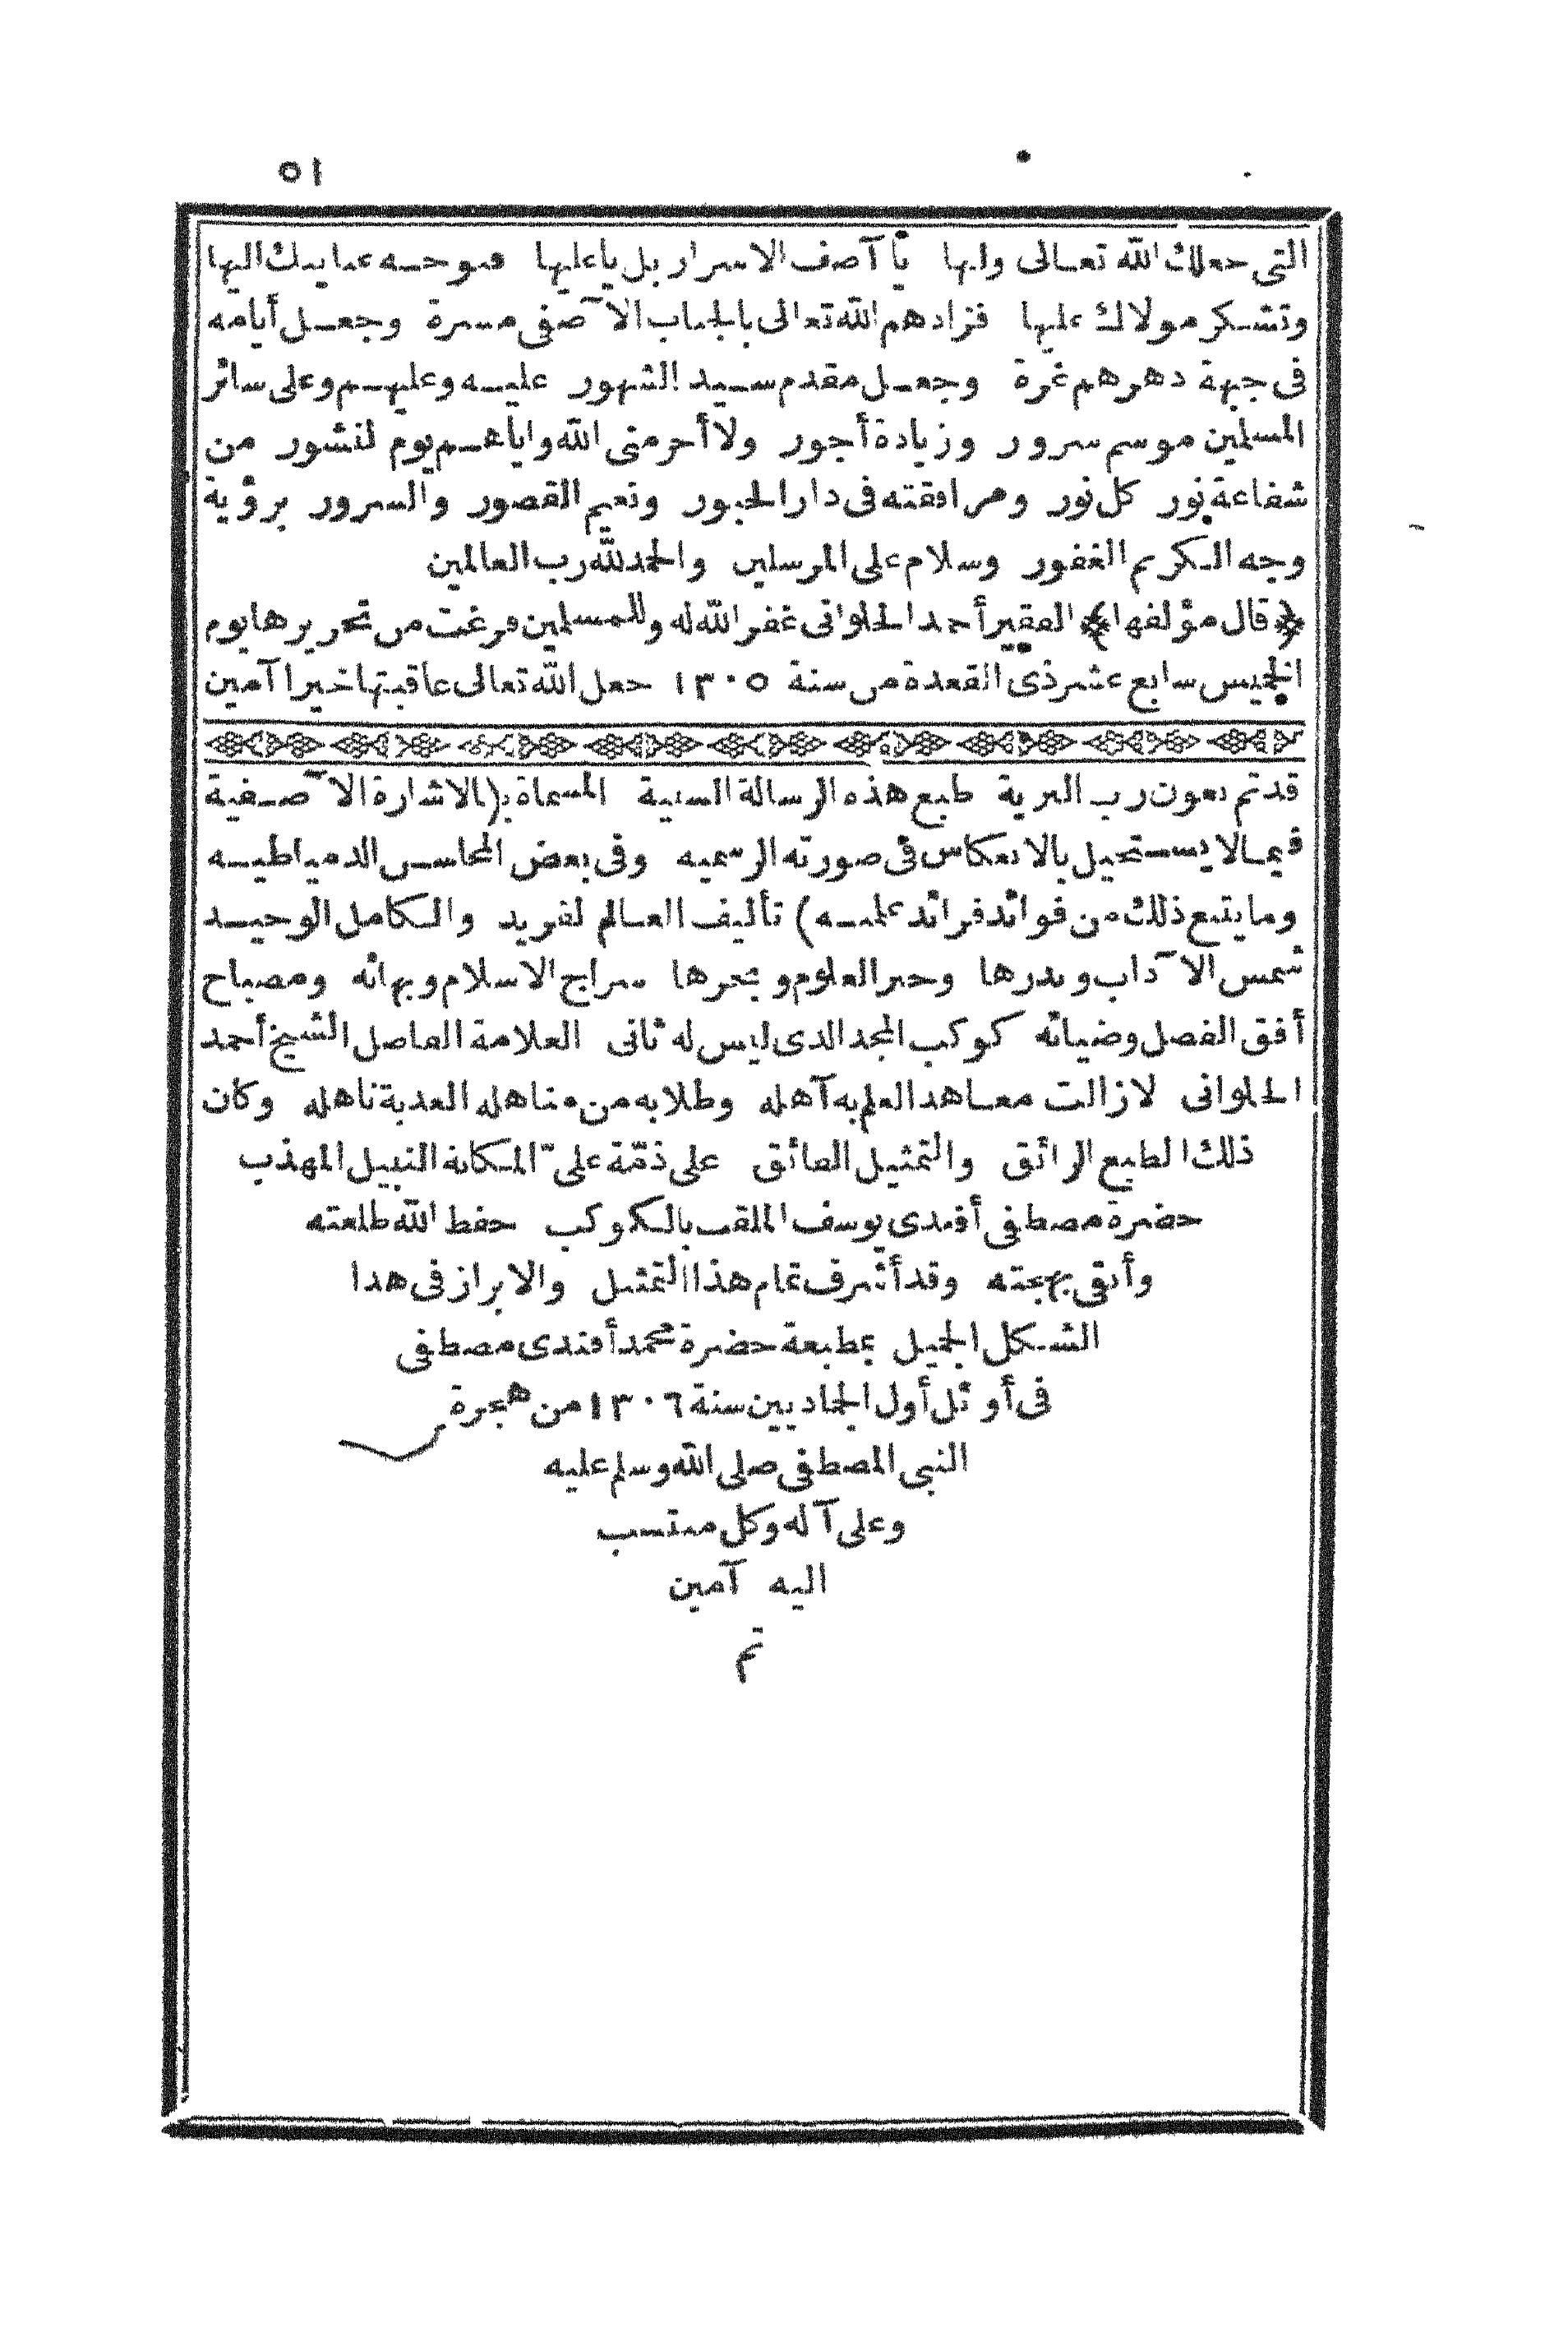 ٥١
التى جعلك الله تعالى ولها يا آصف الاسرار بل ياعليها فتوجه بما يدك اليها
وتشكر مولاك عليها فزادهم الله تعالى بالجناب الآصفى مسرة وجعل أيامه
فى جبهة دهرهم غرة وجعل مقدم سيد الشهور عليه وعليهم وعلى سائر
المسلمين موسم سرور وزيادة أجور ولا أحرمنى الله واياهم يوم لنشور من
شفاعة نور كل نور ومرافقته فى دار الحبور ونعيم القصور والسرور برؤية
وجه الكريم الغفور وسلام على المرسلين والحمد لله رب العالمين
﴿قال مؤلفها﴾ الفقير أحمد الحلوانى غفر الله له وللمسلمين فرغت من تحريرها يوم
الخميس سابع عشر ذى القعدة من سنة ١٣٠٥ جعل الله تعالى عاقبتها خيرا آمين
قد تم بعون رب البرية طبع هذه الرسالة السنية المسماة ب(الاشارة الآصفية
فيما لا يستحيل بالانعكاس فى صورته الرسميه وفى بعض المحاسن الدمياطيه
وما يتبع ذلك من فوائد فرائد علميه) تأليف العالم لفريد والكامل الوحيد
شمس الآداب وبدرها وحبر العلوم وبحرها سراج الاسلام وبهائه ومصباح
أفق الفضل وضيائه كوكب المجد الذى ليس له ثانى العلامة الفاضل الشيخ أحمد
الحلوانى لا زالت معاهد العلم به آهله وطلابه من مناهله العذبة ناهله وكان
ذلك الطبع الرائق والتمثيل الفائق على ذمّة علىّ المكانة النبيل المهذب
حضرة مصطفى أفندى يوسف الملقب بالكوكب حفظ الله طلعته
وأبقى بهجته وقد أشرف تمام هذا التمثيل والابراز فى هذا
الشكل الجميل بمطبعة حضرة محمد أفندى مصطفى
فى أوائل أول الجماديين سنة ١٣٠٦ من هجرة
النبى المصطفى صلى الله وسلم عليه
وعلى آله وكل منتسب
اليه آمين
تم